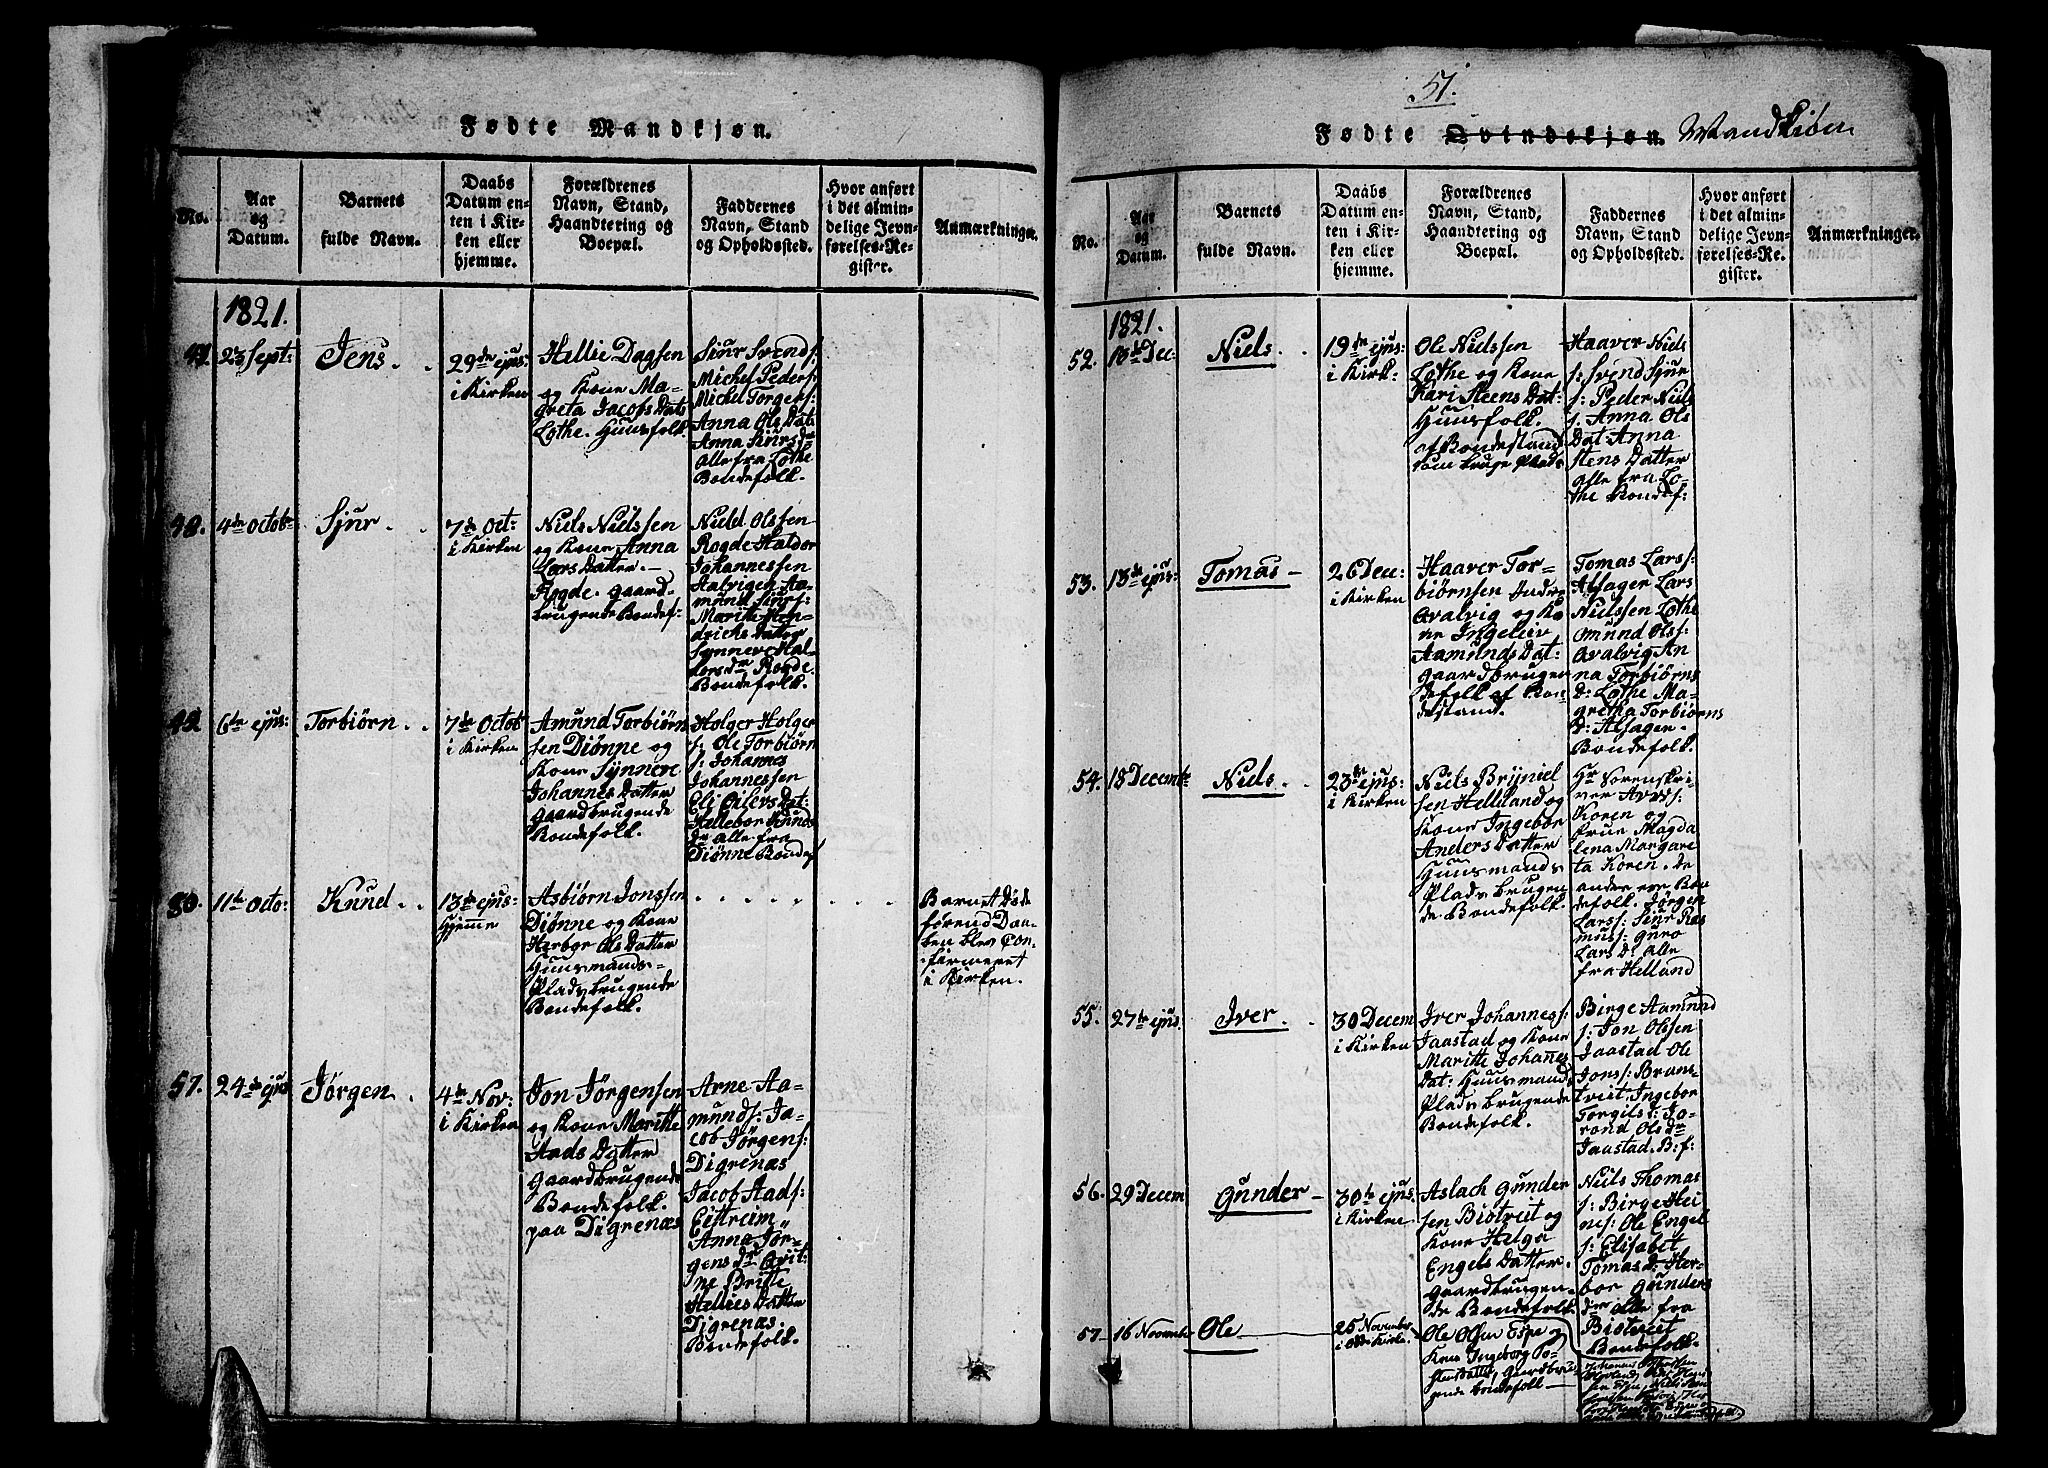 Fødte Mandkjøn.
No.
Aar
og
Datum.
Barnets
fulde Navn.
Daabs
Datum en-
ten i Kir-
ken eller
hjemme.
Forældrenes
Navn, Stand,
Haandtering og
Boepæl.
Faddernes
Navn, Stand
og Opholdssted.
Hvor anført
i det almin-
delige Jevn-
førelses-Re-
gister.
Anmærkninger.
1821.
23 Sept:
Jens
29de ejus:
i Kirken
Hellie Dagsen
og Kone Ma-
greta Jacobs Dat:
Lothe. Huusfolk.
Siur Svends:
Michel Peders:
Michel Torgers:
Anna Ols Dat:
Anna Siurs dr
alle fra Lothe
Bondefolk.
48.
4de Octobr
Sjur
7de Oct:
i Kirken
Niels Nielssen
og Kone Anna
Lars Datter
Rogde. gaard-
brugende Bondef:
Nield Olssen
Rogde Haldor
Johannessen
Aalvigen Aa-
mund Siurs:
Maritte Hen-
drichs datter
Synneve Hal-
dors dr Rogde.
Bondefolk.
49.
6te ejus:
Torbiørn
7de Octob
i Kirken
Amund Torbiørn
sen Diønne og
Kone Synneve
Johannes Datter
gaardbrugende
Bondefolk.
Holger Holger
s: Ole Torbiørn
s: Johannes
Johannessen
Eli Eilers Dat:
Hellebor Knuds
dr alle fra
Diønne Bondef
50.
11te Octo:
Knud
13de ejus:
Hjemme
Asbiørn Jonssen
Diønne og Kone
Herbor Ols Datter
Huusmands-
Plads brugende
Bondefolk.
Barnet Døde
førend Daa-
ben blev Con-
firmeret
i Kirken.
51.
24de ejus
Jørgen
4de Nov:
i Kirken
Jon Jørgensen
og Kone Maritte
Aads Datter
gaardbrugende
Bondefolk.
paa Digrenæs
Arne Aa-
munds: Ja-
cob Jørgens:
Digrenæs
Jacob Aads:
Eittreim
Anna Jør-
gens dr Qvit:
ne Britte
Hellies Datter
Digrenæs.
Bondefolk.
51.
Fødte Qvindekjøn. Mandkiøn
No.
Aar
og
Datum.
Barnets
fulde Navn.
Daabs
Datum en-
ten i Kir-
ken eller
hjemme.
Forældrenes
Navn, Stand,
Haandtering og
Boepæl.
Faddernes
Navn, Stand
og Opholdssted.
Hvor anført
i det almin-
delige Jevn-
førelses-Re-
gister.
Anmærkninger.
1821.
52.
13de Dec:
Niels
19de ejus:
i Kirk:
Ole Nielssen
Lothe og Kone
Kari Steens Dat:
Huusfolk.
af Bondestand
som bruge Plads
Haaver Niels
s: Svend Sjur
s: Peder Niels
s: Anna Ols
Dat: Anna
Stens Datter
alle fra Lo-
the Bondef:
53.
13de ejus:
Tomas
26 Dec:
i Kirken
Haaver Tor-
biørnsen Indre
Qvalvig og Ko-
ne Ingeleiv
Aamunds Dat:
gaardbrugen-
defolk af Bon-
destand.
Tomas Lars:
Alsager Lars
Nielssen Lothe
Omund Ols:
Qvalvig An
na Torbiørns
d: Lothe Ma-
gretha Torbiørns
d: Alsager.
Bondefolk.
54.
18 Decembr
Niels
23de ejus:
i Kirken
Niels Brÿniel
sen Helleland og
Kone Ingebor
Anders Datter
Huusmands
Plads brugen
de Bondefolk.
Hr Sorenskri-
ver
Koren og
frue Magda
lena Margare
ta Koren. de
andre ere Bon
defolk. Jørgen
Lars: Siur Ras
mus: Guro
Lars D: alle
fra Helland
55.
27de ejus.
Iver
30 Decem
i Kirken
Iver Johannes:
Jaastad og Kone
Maritte Johanes
Dat: Huusmands
Plads brugende
Bondefolk.
Birge Aamund
s: Jon Olssen
Jaastad Ole
Jons: Brans-
tveit, Ingebor
Torgils: Jo-
rond Ols dr
Jaastad. B: f:
56.
29 Decem
Gunder
30te ejus:
i Kirken
Aslach Gunder
sen Biotveit og
Kone Helga
Engels Datter.
gaardbrugen-
de Bondefolk.
Niels Thomas
s: Birge Stei
nes: Ole Engel
s: Elisabet
Tomas d: Her-
bor Gunders
dr alle fra
Biotveit
Bondefolk.
57
16 Novembr
Ole
25 November
i Odde Kirke
Ole Olsen Espe og
Kone Ingeborg To-
gaardbru
gende Bondefolk